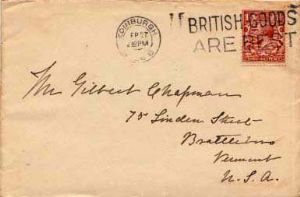 EDINBURGH
BRITISH GOODS
ARE BEST
Mr Gilbert Chapman
75 Linden Street
Brattleboro
Vermont
U.S.A.